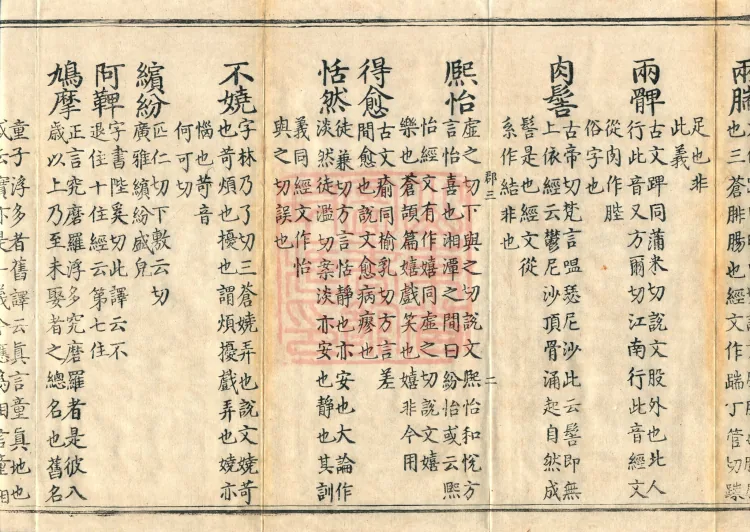 兩腨
也三蒼腓腸也經文作踹丁管切踹
足也非
此義
兩髀古文䠋同蒲米切說文股外也北人
行此音又方爾切江南行此音經文
從肉作䏶
俗字也
肉髻古帝切梵言嗢瑟尼沙此云髻即無
上依經云鬱尼沙頂骨涌起自然成
髻是也經文從
系作結非也
郡三 二
熙怡虛之切下與之切說文熙怡和悅方
言怡喜也湘潭之間曰紛怡或云熙
怡經文有作嬉同虛之切說文嬉
樂也蒼頡篇嬉戲笑也嬉非今用
得愈古文瘉同榆乳切方言差
間愈也說文愈病瘳也
恬然徒兼切方言恬靜也亦安也大論作
淡然徒濫切案淡亦安也靜也其訓
義同經文作怡
與之切誤也
不嬈字林乃了切三蒼嬈弄也說文嬈苛
也苛煩也擾也謂煩擾戲弄也嬈亦
惱也苛音
何可切
繽紛匹仁切下敷云切
廣雅繽紛盛皃
阿鞞字書陛奚切此譯云不
退住十住經云第七住
鳩摩正言究磨羅浮多究磨羅者是彼八
歲以上乃至未娶者之總名也舊名
童子浮多者舊譯云真言童真地也